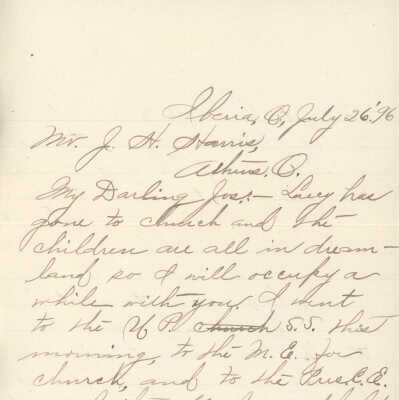 Iberia, O., July 26.' 96
Mr. J. H. Harris,
Athens. O.
My Darling Jos:- Lucy has
gone to church and the
children are all in dream-
land so I will occupy a
while with you. I went
to the U. P. church S.S. this
morning, to the M.E. for
church, and to the Pres. C.E.